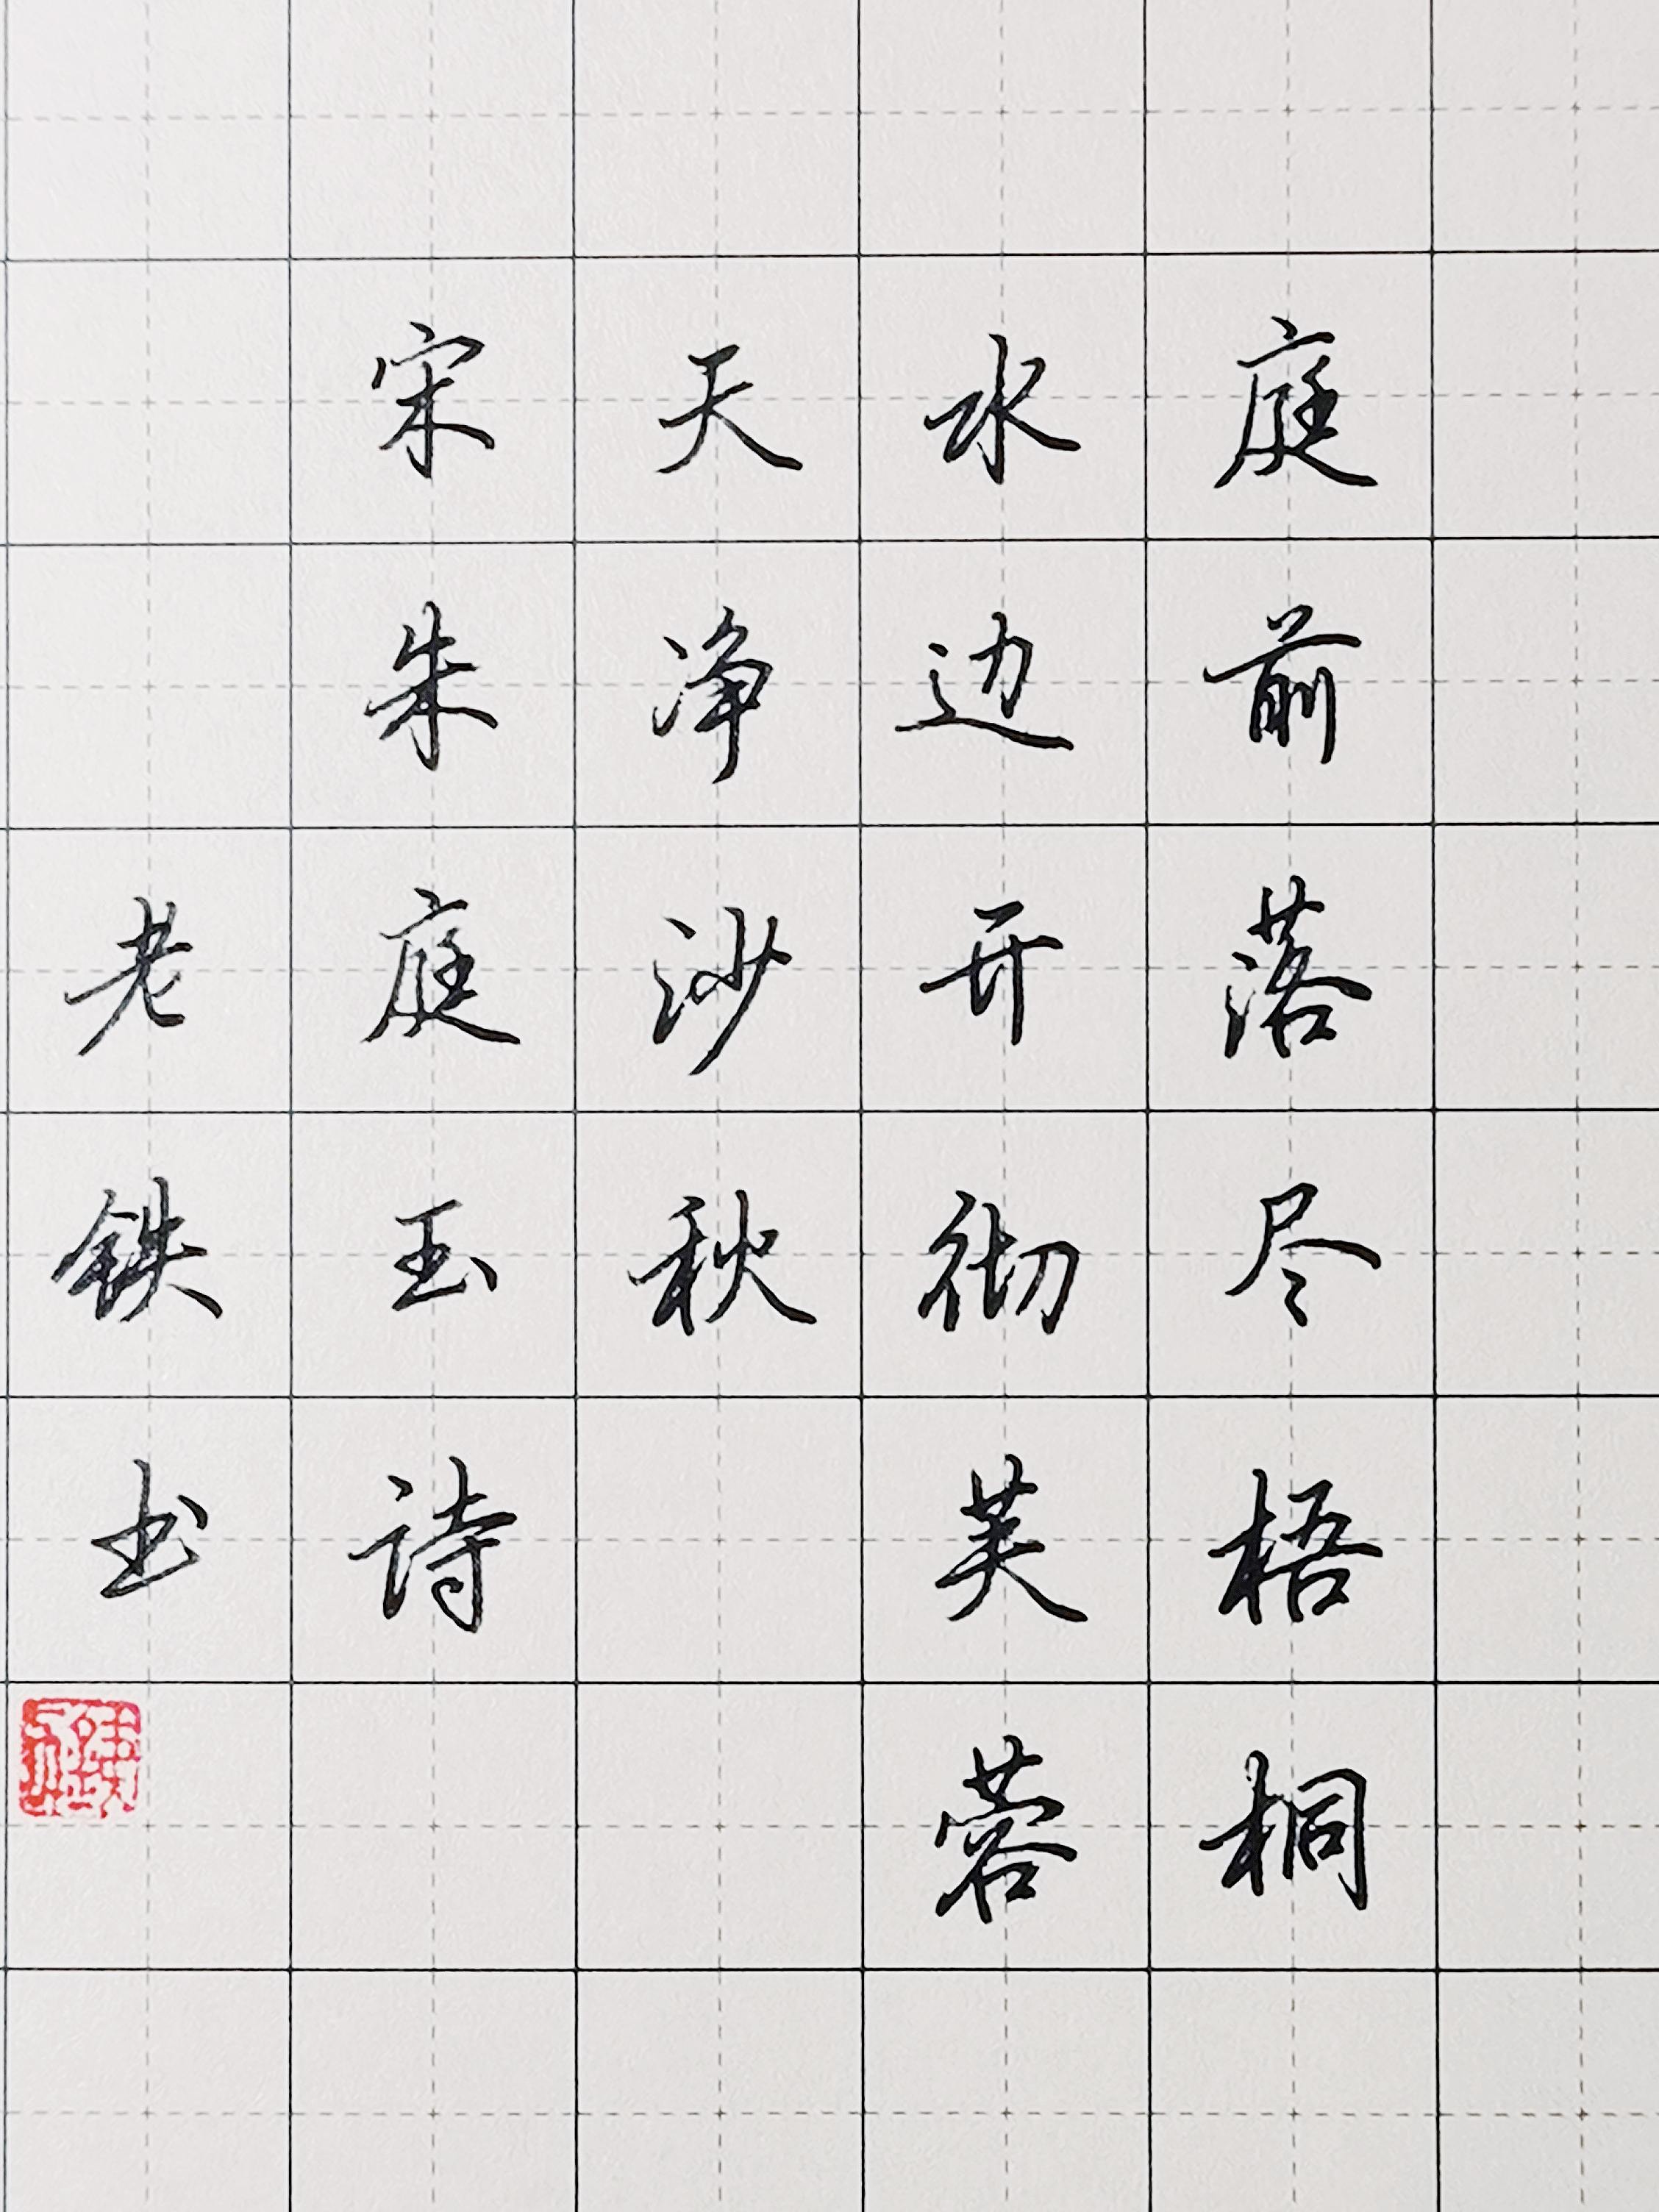 庭前落尽梧桐
水边开彻芙蓉
天净沙秋
宋朱庭玉诗
老铁书